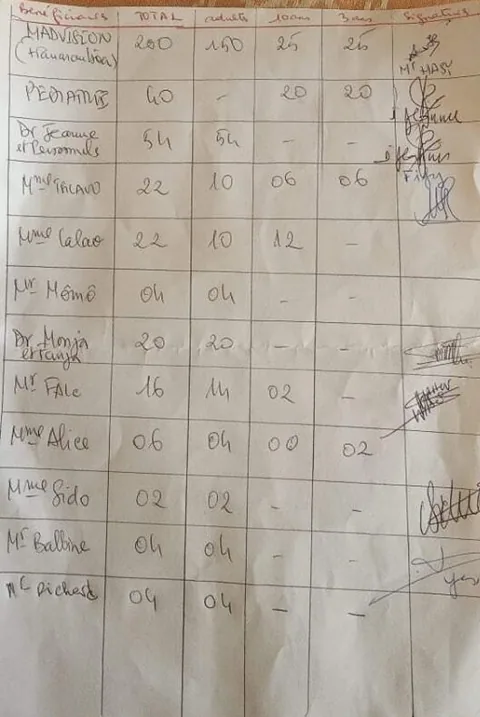 Bénéficiaires TOTAL adults 10ans 3ans Signatures
MADVISION 200 150 25 25
Mr HASI
PEDIATRIE 40 - 20 20
Dr Jeanne 54 54 - -
et Personnels
Mme 22 10 06 06
Mme Calao 22 10 12 -
Mr Mômô 04 04 - -
Dr Monja 20 20 - -
et Tanja
Mr FALC 16 14 02 -
Mme Alice 06 04 00 02
Mme Sido 02 02 - -
Mr Balbine 04 04 - -
yes
Mr Richard 04 04 - -